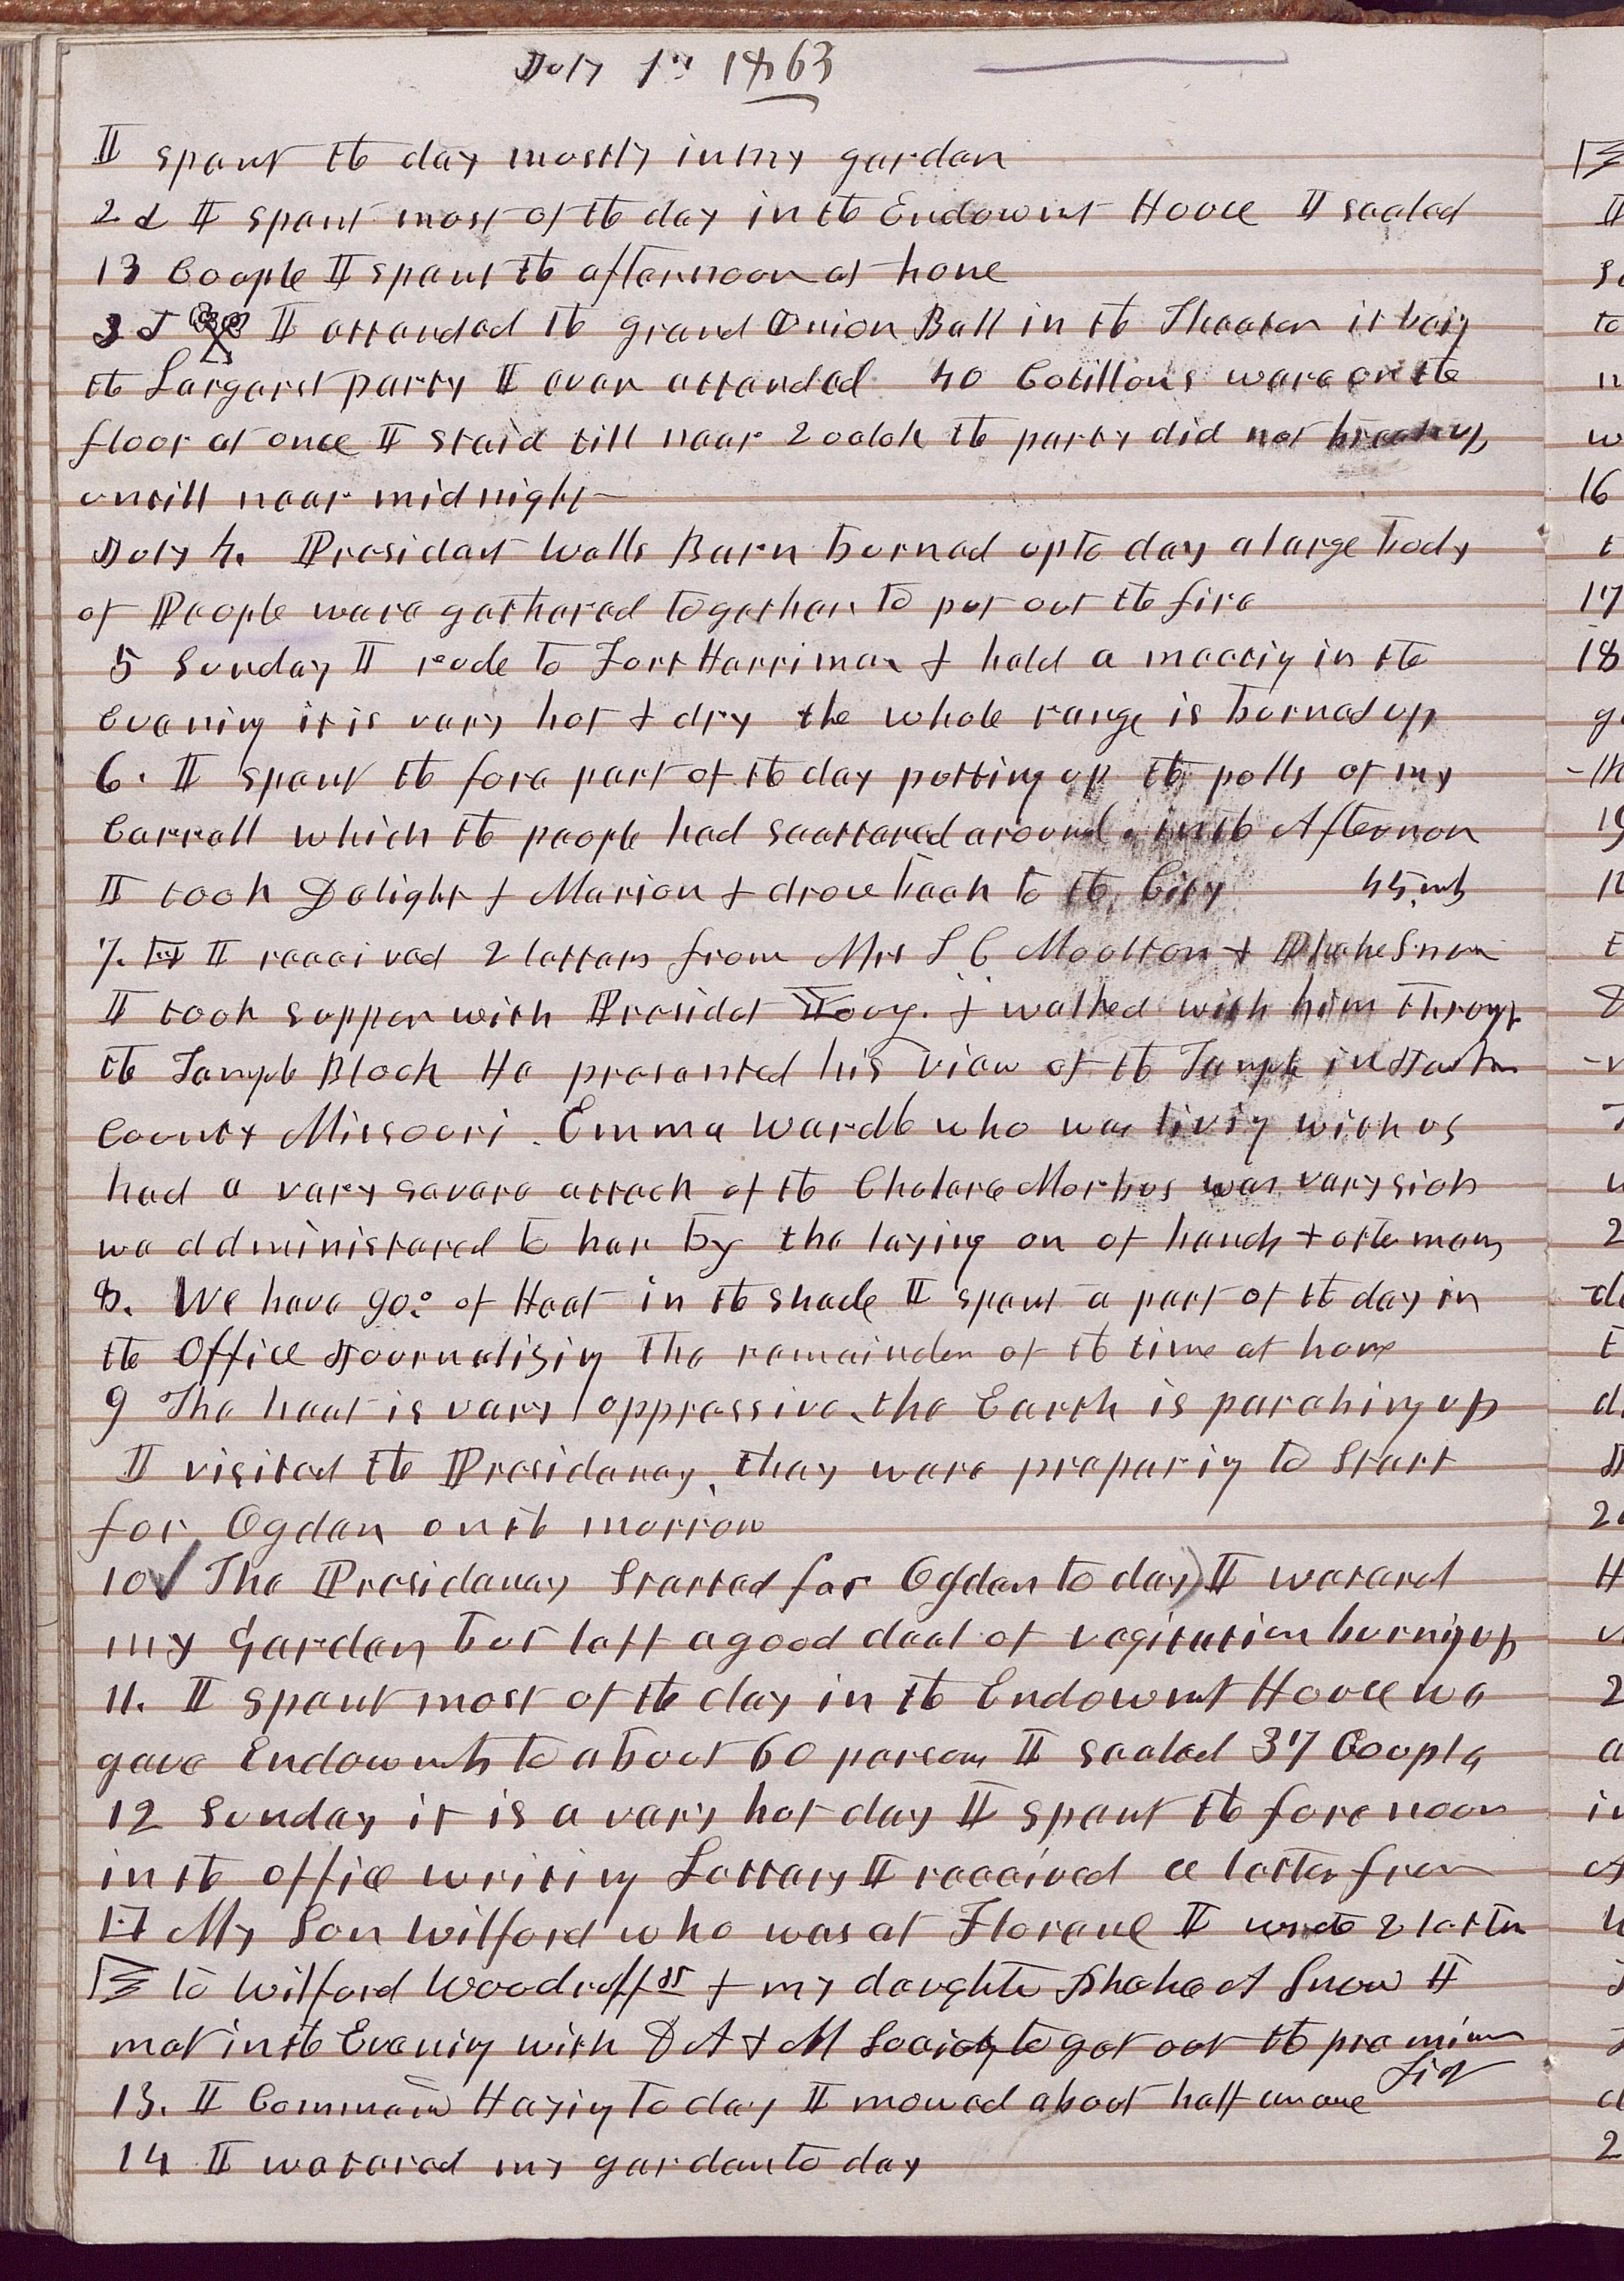 July 1st 1863
I spent the day mostly in my garden
2d I spent most of the day in the Endowmt House I sealed
13 Couple I spent the afternoon at home
3d I attended the grand Union Ball in the Theater it being
the Largest party I ever attended 40 Cotillons were on the
floor at once I staid till near 2 oclok the party did not break up
untill near midnight
July 4. President Wells Barn burned up to day a large body
of People were gathered together to put out the fire
5 Sunday I rode to Fort Harriman & held a meeting in the
Evening it is very hot & dry the whole range is burned up
6. I spent the fore part of the day putting up the polls of my
Carrall which the people had scattered around in the Afternoon
I took Delight & Marion & drove back to the City 45 mls
7. I received 2 letters from Mrs S C Moulton & Phebe Snow
I took supper with President Young. & walked with him through
the Temple Block He presented his view of the Temple in Jackson
County Missouri. Emma Wardle who was living with us
had a very severe attack of the Cholera Morbus was very sick
we administered to her by the laying on of hands & other means
8. We have 90.° of Heat in the shade I spent a part of the day in
the Office Journalising The remainder of the time at home
9 The heat is very oppressive, the Earth is parching up
I visited the Presidency, they were preparing to Start
for Ogden on the morrow
10 The Presidency Started for Ogden to day) I watered
my Garden but left a good deal of vegitation burning up
11. I spent most of the day in the Endowmt House we
gave Endowmts to about 60 persons I sealed 37 Couple
12 Sunday it is a very hot day I spent the forenoon
in the office writing Letters I received a letter from
My Son Wilford who was at Florence I wrote 2 letters
to Wilford Woodruff sr & my daughter Phebe A Snow I
met in the Evening with D A & M Society to get out the premium
List
13. I Commenced Haying to day I mowed about half an acre
14 I watered my garden to day